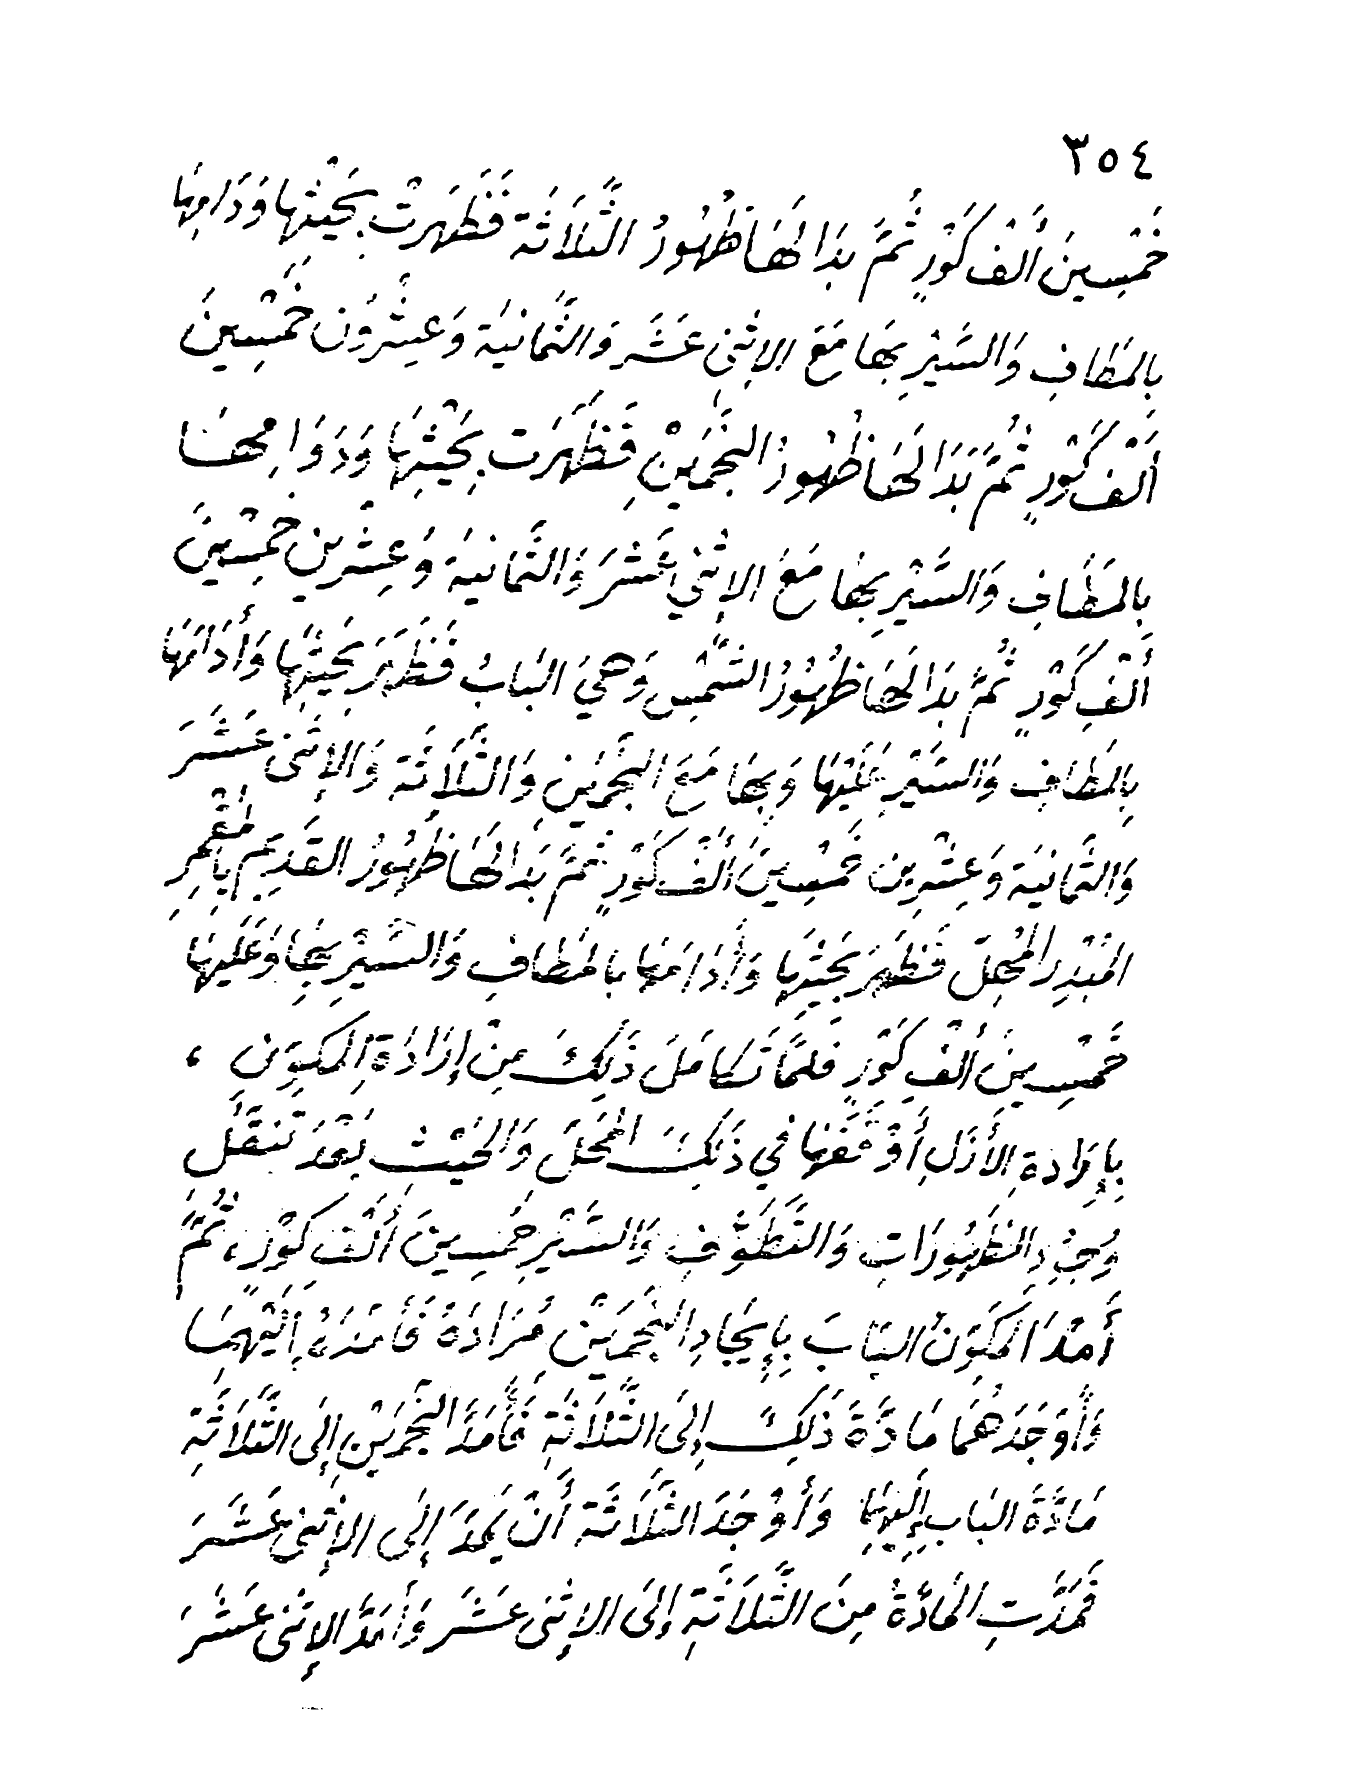 ٣٥٤
خَمْسِينَ أَلْفَ كَوْرٍ ثُمَّ بَدَا لَهَا ظُهُورُ الثَّلَاثَة فَظَهَرَتْ بِحَيْثِهَا وَدَامِهَا
بِالمَطَافِ وَالسَّيْرِ بِهَا مَعَ الإِثْنَى عَشَر وَالثَّمَانيَة وَعِشْرُون خَمْسِينَ
أَلْف كَوْرٍ ثُمَّ بَدَا لَهَا ظُهُورُ النَّجْمَيْنِ فَظَهَرَت بِحَيْثِهَا وَدَوَامِهَا
بِالمَطَافِ وَالسَّيْرِ بِهَا مَعَ الإِثْنَي عَشْرَ وَالثَّمَانيَة وَعِشْرِين خَمْسِينَ
أَلْفِ كَوْرٍ ثُمَّ بَدَا لَهَا ظُهُورُ الشَّمْسِ وَهيَ البَابُ فَظَهَرَ بِحَيْثِهَا وَأَدَامَهَا
بِالمَطَافِ وَالسَّيْرِ عَلَيْهَا وَبِهَا مَعَ النَّجْمَيْنِ وَالثَّلَاثَة وَالإِثْنَى عَشَرَ
وَالثَّمَانيَة وَعِشْرِين خَمْسِينَ أَلْفَ كَوْرٍ ثُمَّ بَدَا لَهَا ظُهُورُ القَدِيمِ بِالمُقْمِرِ
المُبْدِرِ المُهِلِّ فَظَهَرَ بِحَيْثِهَا وَأَدَامَهَا بِالمَطَافِ وَالسَّيْرِ بِهَا وَعَلَيهَا
خَمْسِينَ أَلْفِ كَوْرٍ فَلَمَّا تَكَامَلَ ذَلِكَ مِنْ إِرَادَةِ المكَوِّنِ ،
بِإِرَادةِ الأَزَلِ أَوْقَفَهَا فِي ذَلِكَ المَحَلِّ وَالحَيْثِ بَعْدَ تَنَقُّلِ
وُجُودِ الظُّهُورَاتِ وَالتَّطَوُّفِ وَالسَّيْرِ خَمْسِينَ أَلْفَ كَوْرٍ، ثُمَّ
أَمَدَّ المكَوِّنُ البَابَ بِإِيجَادِ النَّجْمَيْنِ مُرَادَهُ فَأَمَدَهُ إِلَيْهِمَا
وَأَوْجَدَهُمَا مَادَّةَ ذَلِكَ إِلَى الثَّلَاثَةِ فَأَمَدَّ النَّجْمَيْنِ إِلَى الثَّلَاثَةِ
مَادَّةَ البَابِ إِلَيهِمَا وَأَوْجَدَ الثَّلَاثَة أَنْ يَمُدَّ إِلَى الإِثْنَى عَشَرَ
فَمَدَّتِ المَادَّةُ مِنَ الثَّلَاثَةِ إِلَى الإِثْنَى عَشَرَ وَأَمَدَّ الإِثْنَى عَشَرَ